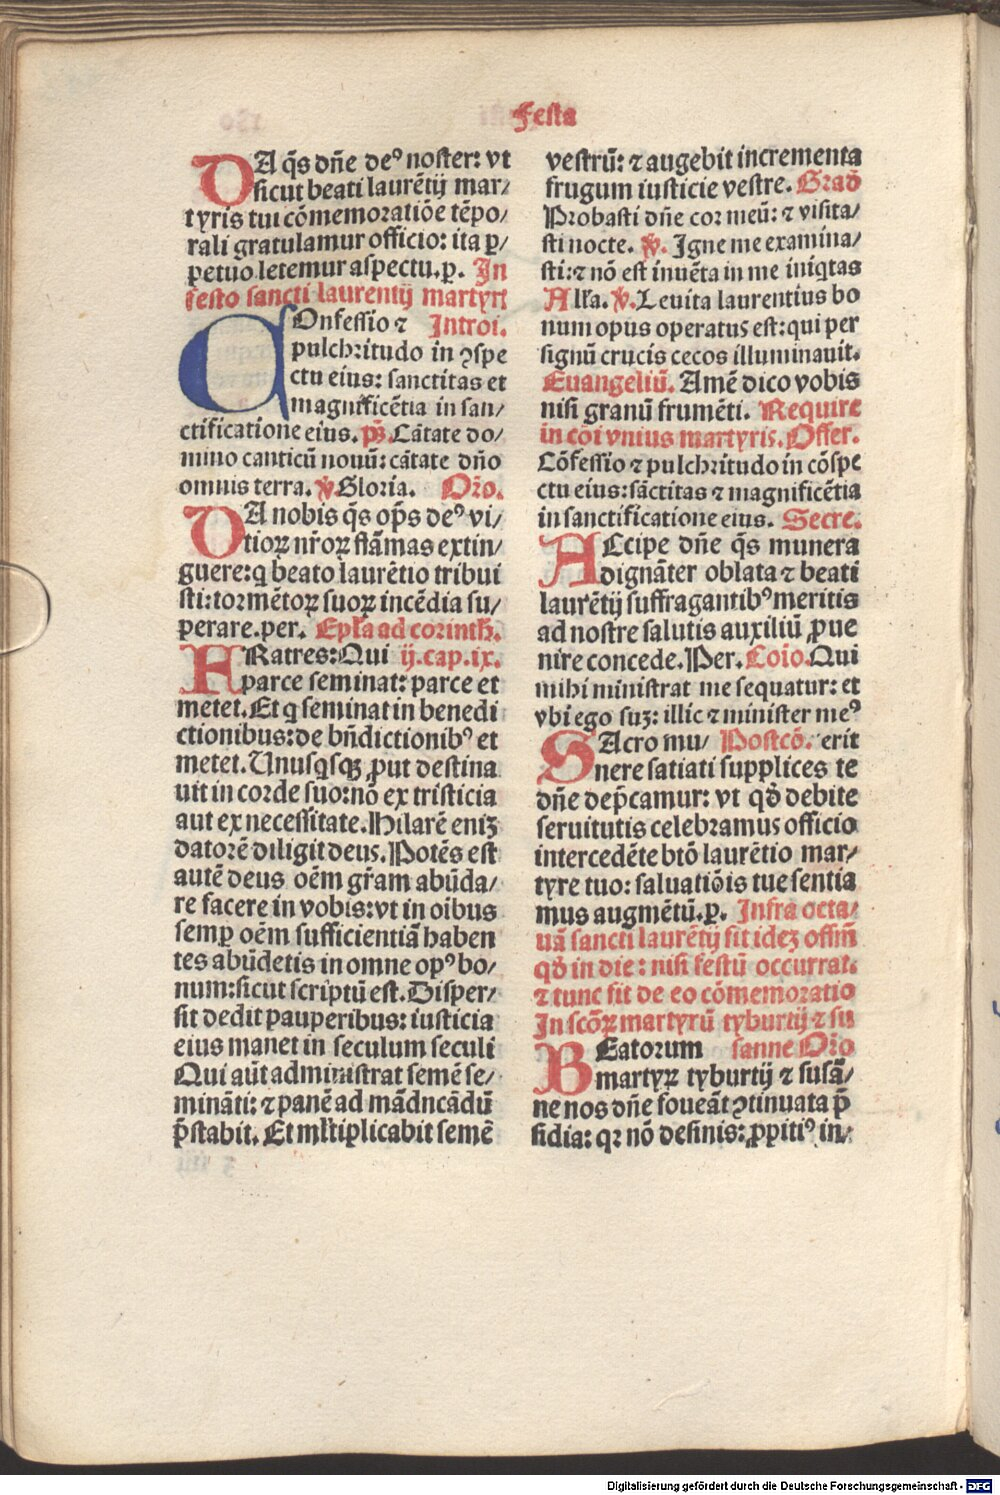 Festa
DA q̄s dn̄e de⁹ noster: vt
sicut beati laurētij mar/
tyris tui cōmemoratiōe tēpo/
rali gratulamur officio: ita ꝑ/
petuo letemur aspectu.p. In
festo sancti laurentij martyri
COnfessio ⁊ Introi.
pulchritudo in ꝯspe
ctu eius: sanctitas et
magnificētia in san/
ctificatione eius. p̄s. Cātate do/
mino canticū nouū: cātate dn̄o
omnis terra. ℣ Gloria. Or̄o.
DA nobis q̄s op̄s de⁹ vi/
tioꝝ nr̄oꝝ flāmas extin/
guere: q beato laurētio tribui
sti: tormētoꝝ suoꝝ incēdia su/
perare. per. Epl̄a ad corinth.
FRatres: Qui ij. cap. ix.
parce seminat: parce et
metet. Et q seminat in benedi
ctionibus: de bn̄dictionib⁹ et
metet. Unusqsqꝫ ꝓut destina
uit in corde suo: nō ex tristicia
aut ex necessitate. Hilarē eniꝫ
datorē diligit deus. Potēs est
autē deus oēm gr̄am abūda/
re facere in vobis: vt in oībus
semꝑ oēm sufficientiā haben
tes abūdetis in omne op⁹ bo/
num: sicut scriptū est. Disper/
sit dedit pauperibus: iusticia
eius manet in seculum seculi
Qui aūt administrat semē se/
mināti: ⁊ panē ad mādncādū
p̄stabit. Et ml̄tiplicabit semē
vestrū: ⁊ augebit incrementa
frugum iusticie vestre. Grad̄
Probasti dn̄e cor meū: ⁊ visita/
sti nocte. ℣. Igne me examina/
sti: ⁊ nō est inuēta in me iniqtas
All̄a. ℣. Leuita laurentius bo
num opus operatus est: qui per
signū crucis cecos illuminauit.
Euangeliū. Amē dico vobis
nisi granū frumēti. Require
in cōi vnius martyris. Offer.
Cōfessio ⁊ pulchritudo in cōspe
ctu eius: sāctitas ⁊ magnificētia
in sanctificatione eius. Secre.
ACcipe dn̄e q̄s munera
dignāter oblata ⁊ beati
laurētij suffragantib⁹ meritis
ad nostre salutis auxiliū ꝓue
nire concede. Per. Cōio. Qui
mihi ministrat me sequatur: et
vbi ego suꝫ: illic ⁊ minister me⁹
SAcro mu/ Postcō. erit
nere satiati supplices te
dn̄e dep̄camur: vt qd̄ debite
seruitutis celebramus officio
intercedēte btō laurētio mar/
tyre tuo: saluatiōis tue sentia
mus augmētū. p. Infra octa/
uā sancti laurētij fit ideꝫ offm̄
qd̄ in die: nisi festū occurrat.
⁊ tunc fit de eo cōmemoratio
In scōꝝ martyrū tyburtij ⁊ su
BEatorum sanne Or̄o
martyꝝ tyburtij ⁊ susā/
ne nos dn̄e foueāt ꝯtinuata p̄
sidia: qꝛ nō desinis: ꝓpiti⁹ in/
Digitalisierung gefördert durch die Deutsche Forschungsgemeinschaft - DFG